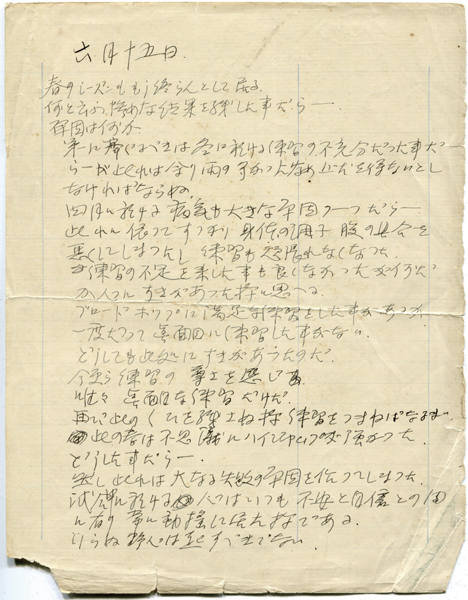 六月十五日.
春のシーズンももう終らんとして居る.
何と云ふ惨めな結果を残した事だらー.
原因は何か
第一に 冬に於ける練習の不充分だった事だ
らーが此れは余り雨の多かったなめ 止むを得ないとし
なければならぬ.
四月に於ける 病気も大きな原因の一つだらー
此れに依ってすっかり身体の調子 腹の具合を
悪くしてしまったし 練習も頑張れなくなった.
練習の不足を来した事も良くなかった
があった様に思へる
ブロードホップに満足な練習をした事があったか
一度だって真面目に練習した事がない.
どうしても此処にすきがあったのだ.
今更ら練習の 尊さを思いる
唯々 真面目な練習だけだ.
再び此の くひを残さね様 練習をつまねばならぬ
此の春は不思議にハイジャンプが強かった
どうした事だらー.
然し此れは大なる失敗の原因を作ってしまった.
試合に於ける 人はいつも 不安と自信との間
に有り 常に動揺に居た様である.